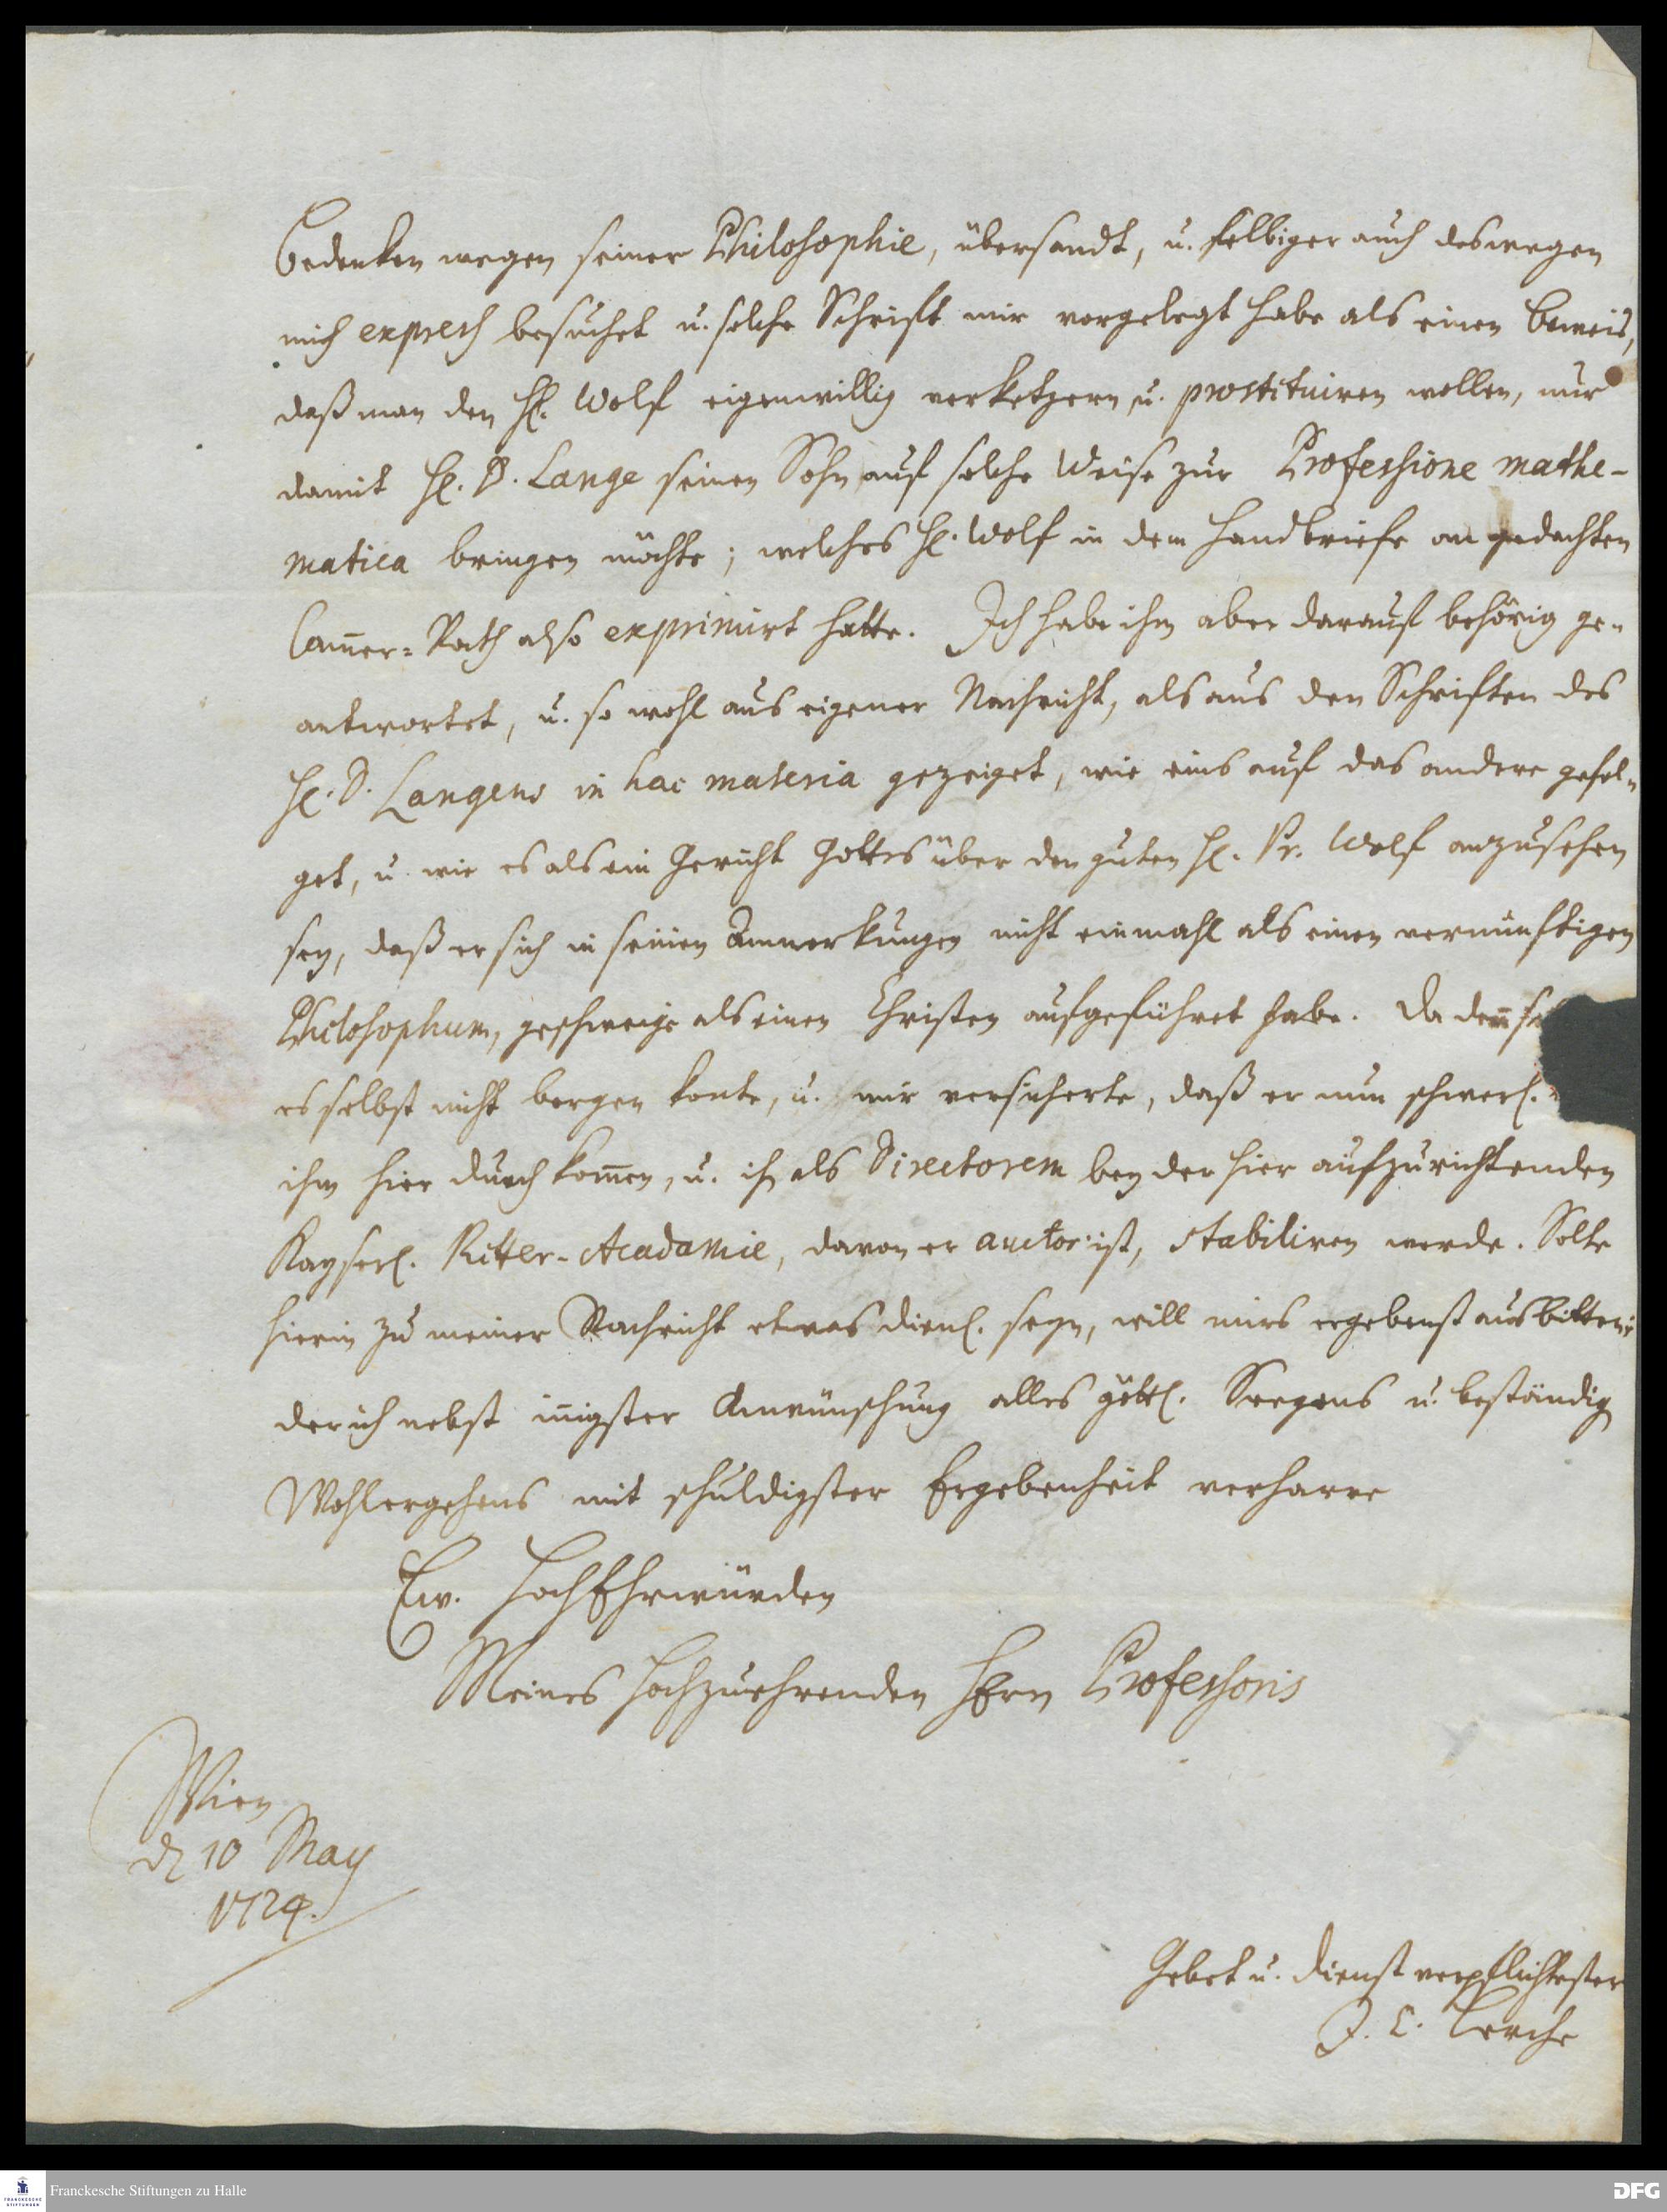 Bedenken wegen seiner Philosophie, übersandt, u. selbiger auch deswegen
mich express besuchet u. solche Schrifft mir vorgelegt habe als einen Beweis,
daß man den H. Wolf eigenwillig verketzern u. prostituiren wollen, nur
damit H. D. Lange seinen Sohn auf solche Weise zur Professione mathe-
matica bringen möchte; welches H. Wolf in dem Handbriefe an gedachten
Cam̄er-Rath also exprimirt hatte. Ich habe ihm aber darauf behörig ge-
antwortet, u. so wohl aus eigener Nachricht, als aus den Schriften des
H. D. Langens in hac materia gezeiget, wie eins auf das andere gefol-
get, u. wie es als ein Gericht Gottes über den guten H. Pr. Wolf anzusehen
sey, daß er sich in seinen Anmerkungen nicht einmahl als einen vernünftigen
Philosophum, geschweige als einen Christen aufgeführet habe. Da den̄
es selbst nicht bergen konte, u. mir versicherte, daß er nun schwerl.
ihm hier durch kom̄en, u. ihn als Directorem bey der hier aufzurichtenden
Kayserl. Ritter-Academie, davon er auctor ist, stabiliren werde. Solte
hierin zu meiner Nachricht etwas dienl. seyn, will mirs ergebenst ausbitten
der ich nebst in̄igster Anwünschung alles göttl. Seegens u. beständig
Wohlergehens mit schuldigster Ergebenheit verharre
Ew. HochEhrwürden
Meines Hochzuehrenden Herrn Professoris
Wien
d 10 May
1724.
Gebet u. Dienst verpflichtester
J. C. Lerche
Franckesche Stiftungen zu Halle
FRANCKESCHE STIFTUNGEN
DFG